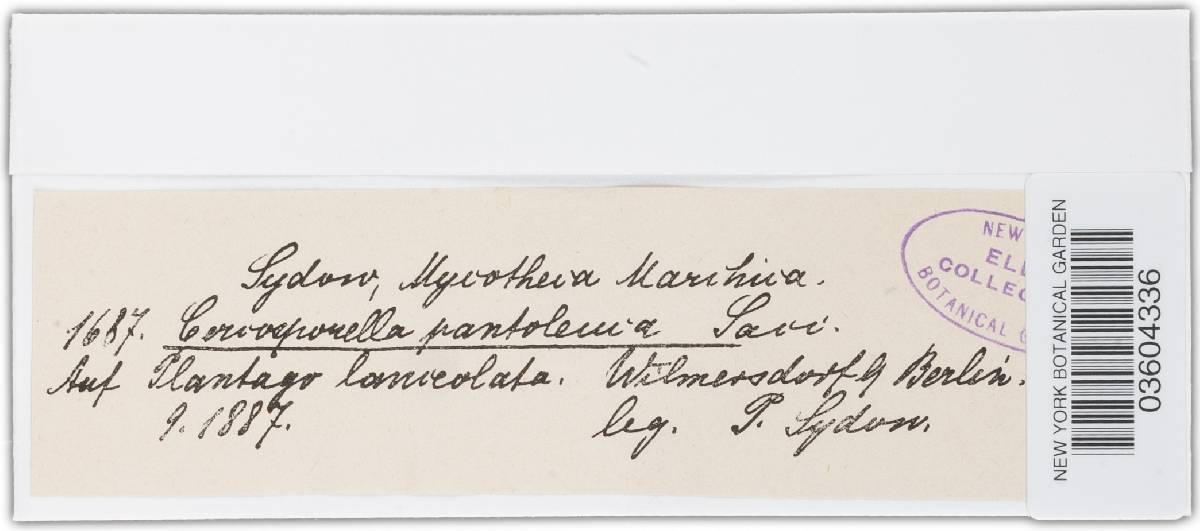 Sydow, Mycotheca Marchica.
1687. Cercosporella pantoleuca Sacc.
Auf Plantago lanceolata. Wilmersdorf Berlin.
9.1887. leg. P. Sydow.
NEW
ELL
COLLEC
BOTANICAL G
NEW YORK BOTANICAL GARDEN
03604336